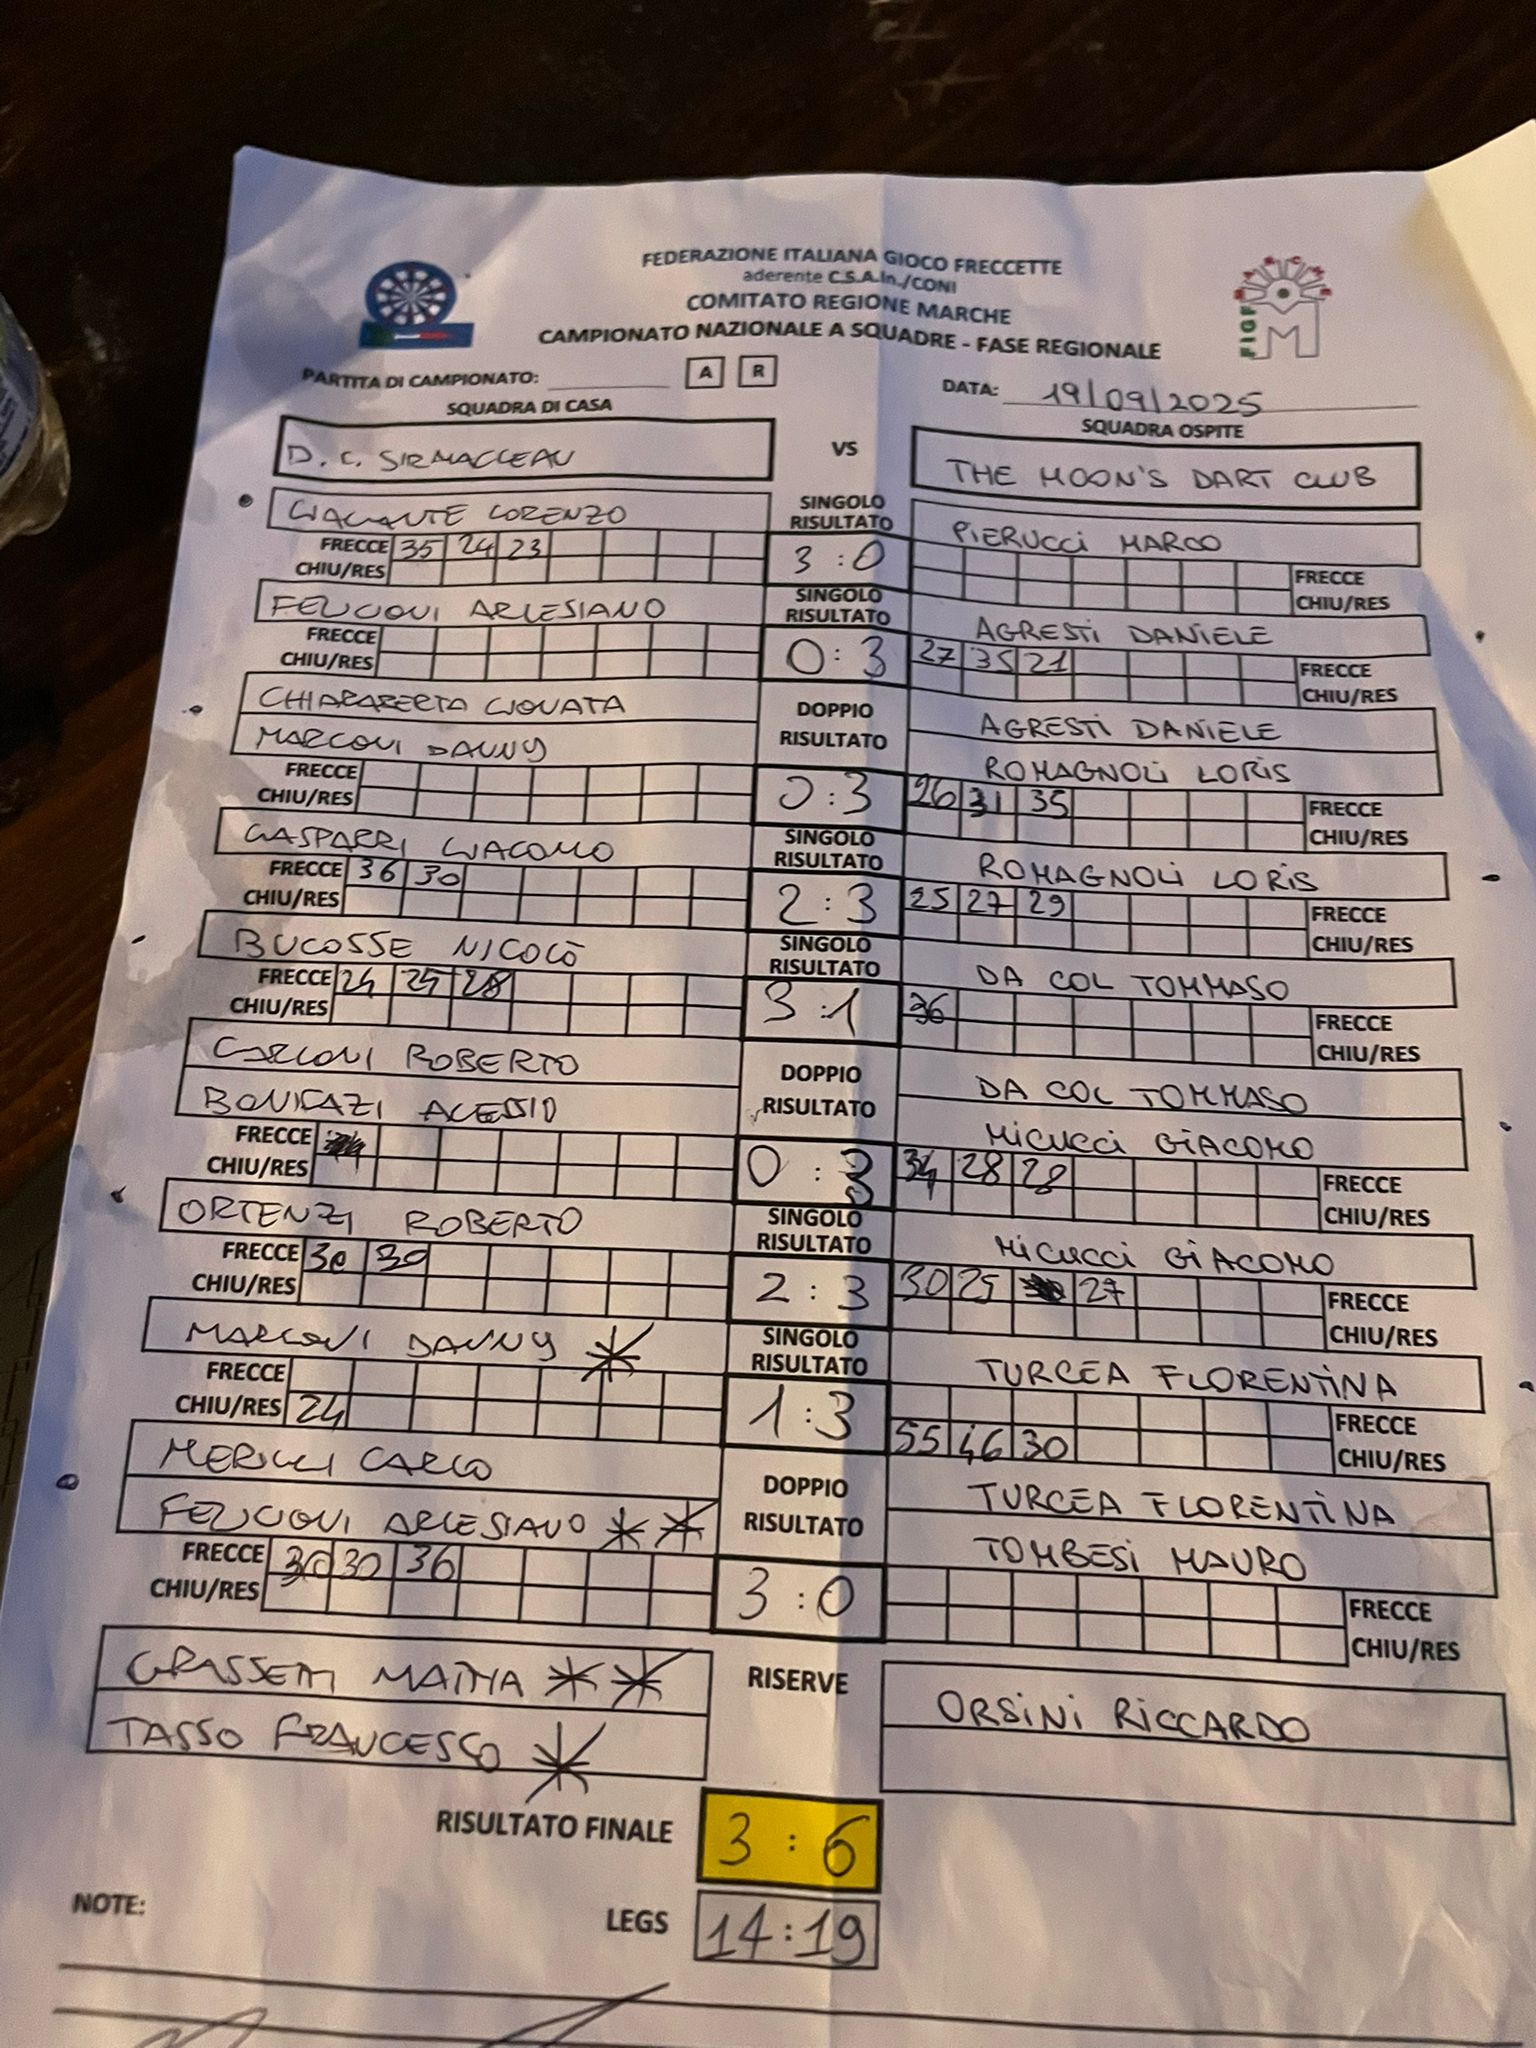 FEDERAZIONE ITALIANA GIOCO FRECCETTE
aderente C.S.A.In./CONI
COMITATO REGIONE MARCHE
CAMPIONATO NAZIONALE A SQUADRE - FASE REGIONALE
FIGF MARCHE M
PARTITA DI CAMPIONATO: A R DATA: 19/09/2025
SQUADRA DI CASA SQUADRA OSPITE
D. C. SIRMACCEAU VS THE MOON'S DART CLUB
LORENZO SINGOLO RISULTATO PIERUCCI MARCO
FRECCE 35 24 23 3:0 FRECCE
CHIU/RES CHIU/RES
ARLESIANO SINGOLO RISULTATO AGRESTI DANIELE
FRECCE 0:3 27 35 21 FRECCE
CHIU/RES CHIU/RES
CHIARABERTA DOPPIO AGRESTI DANIELE
MARCONI DANNY RISULTATO ROMAGNOLI LORIS
FRECCE 0:3 26 31 35 FRECCE
CHIU/RES CHIU/RES
GASPARRI GIACOMO SINGOLO RISULTATO ROMAGNOLI LORIS
FRECCE 36 30 2:3 25 27 29 FRECCE
CHIU/RES CHIU/RES
BUCOSSE NICOLÒ SINGOLO RISULTATO DA COL TOMMASO
FRECCE 24 25 28 3:1 36 FRECCE
CHIU/RES CHIU/RES
CARLONI ROBERTO DOPPIO DA COL TOMMASO
BONIFAZI ALESSIO RISULTATO MICUCCI GIACOMO
FRECCE 0:3 34 28 28 FRECCE
CHIU/RES CHIU/RES
ORTENZI ROBERTO SINGOLO RISULTATO MICUCCI GIACOMO
FRECCE 30 30 2:3 30 25 27 FRECCE
CHIU/RES CHIU/RES
MARCONI DANNY * SINGOLO RISULTATO TURCEA FLORENTINA
FRECCE 1:3 FRECCE
CHIU/RES 24 55 46 30 CHIU/RES
CARLO DOPPIO TURCEA FLORENTINA
ARLESIANO ** RISULTATO TOMBESI MAURO
FRECCE 30 30 36 3:0 FRECCE
CHIU/RES CHIU/RES
GRASSETTI MATTIA ** RISERVE ORSINI RICCARDO
TASSO FRANCESCO *
RISULTATO FINALE 3:6
NOTE: LEGS 14:19